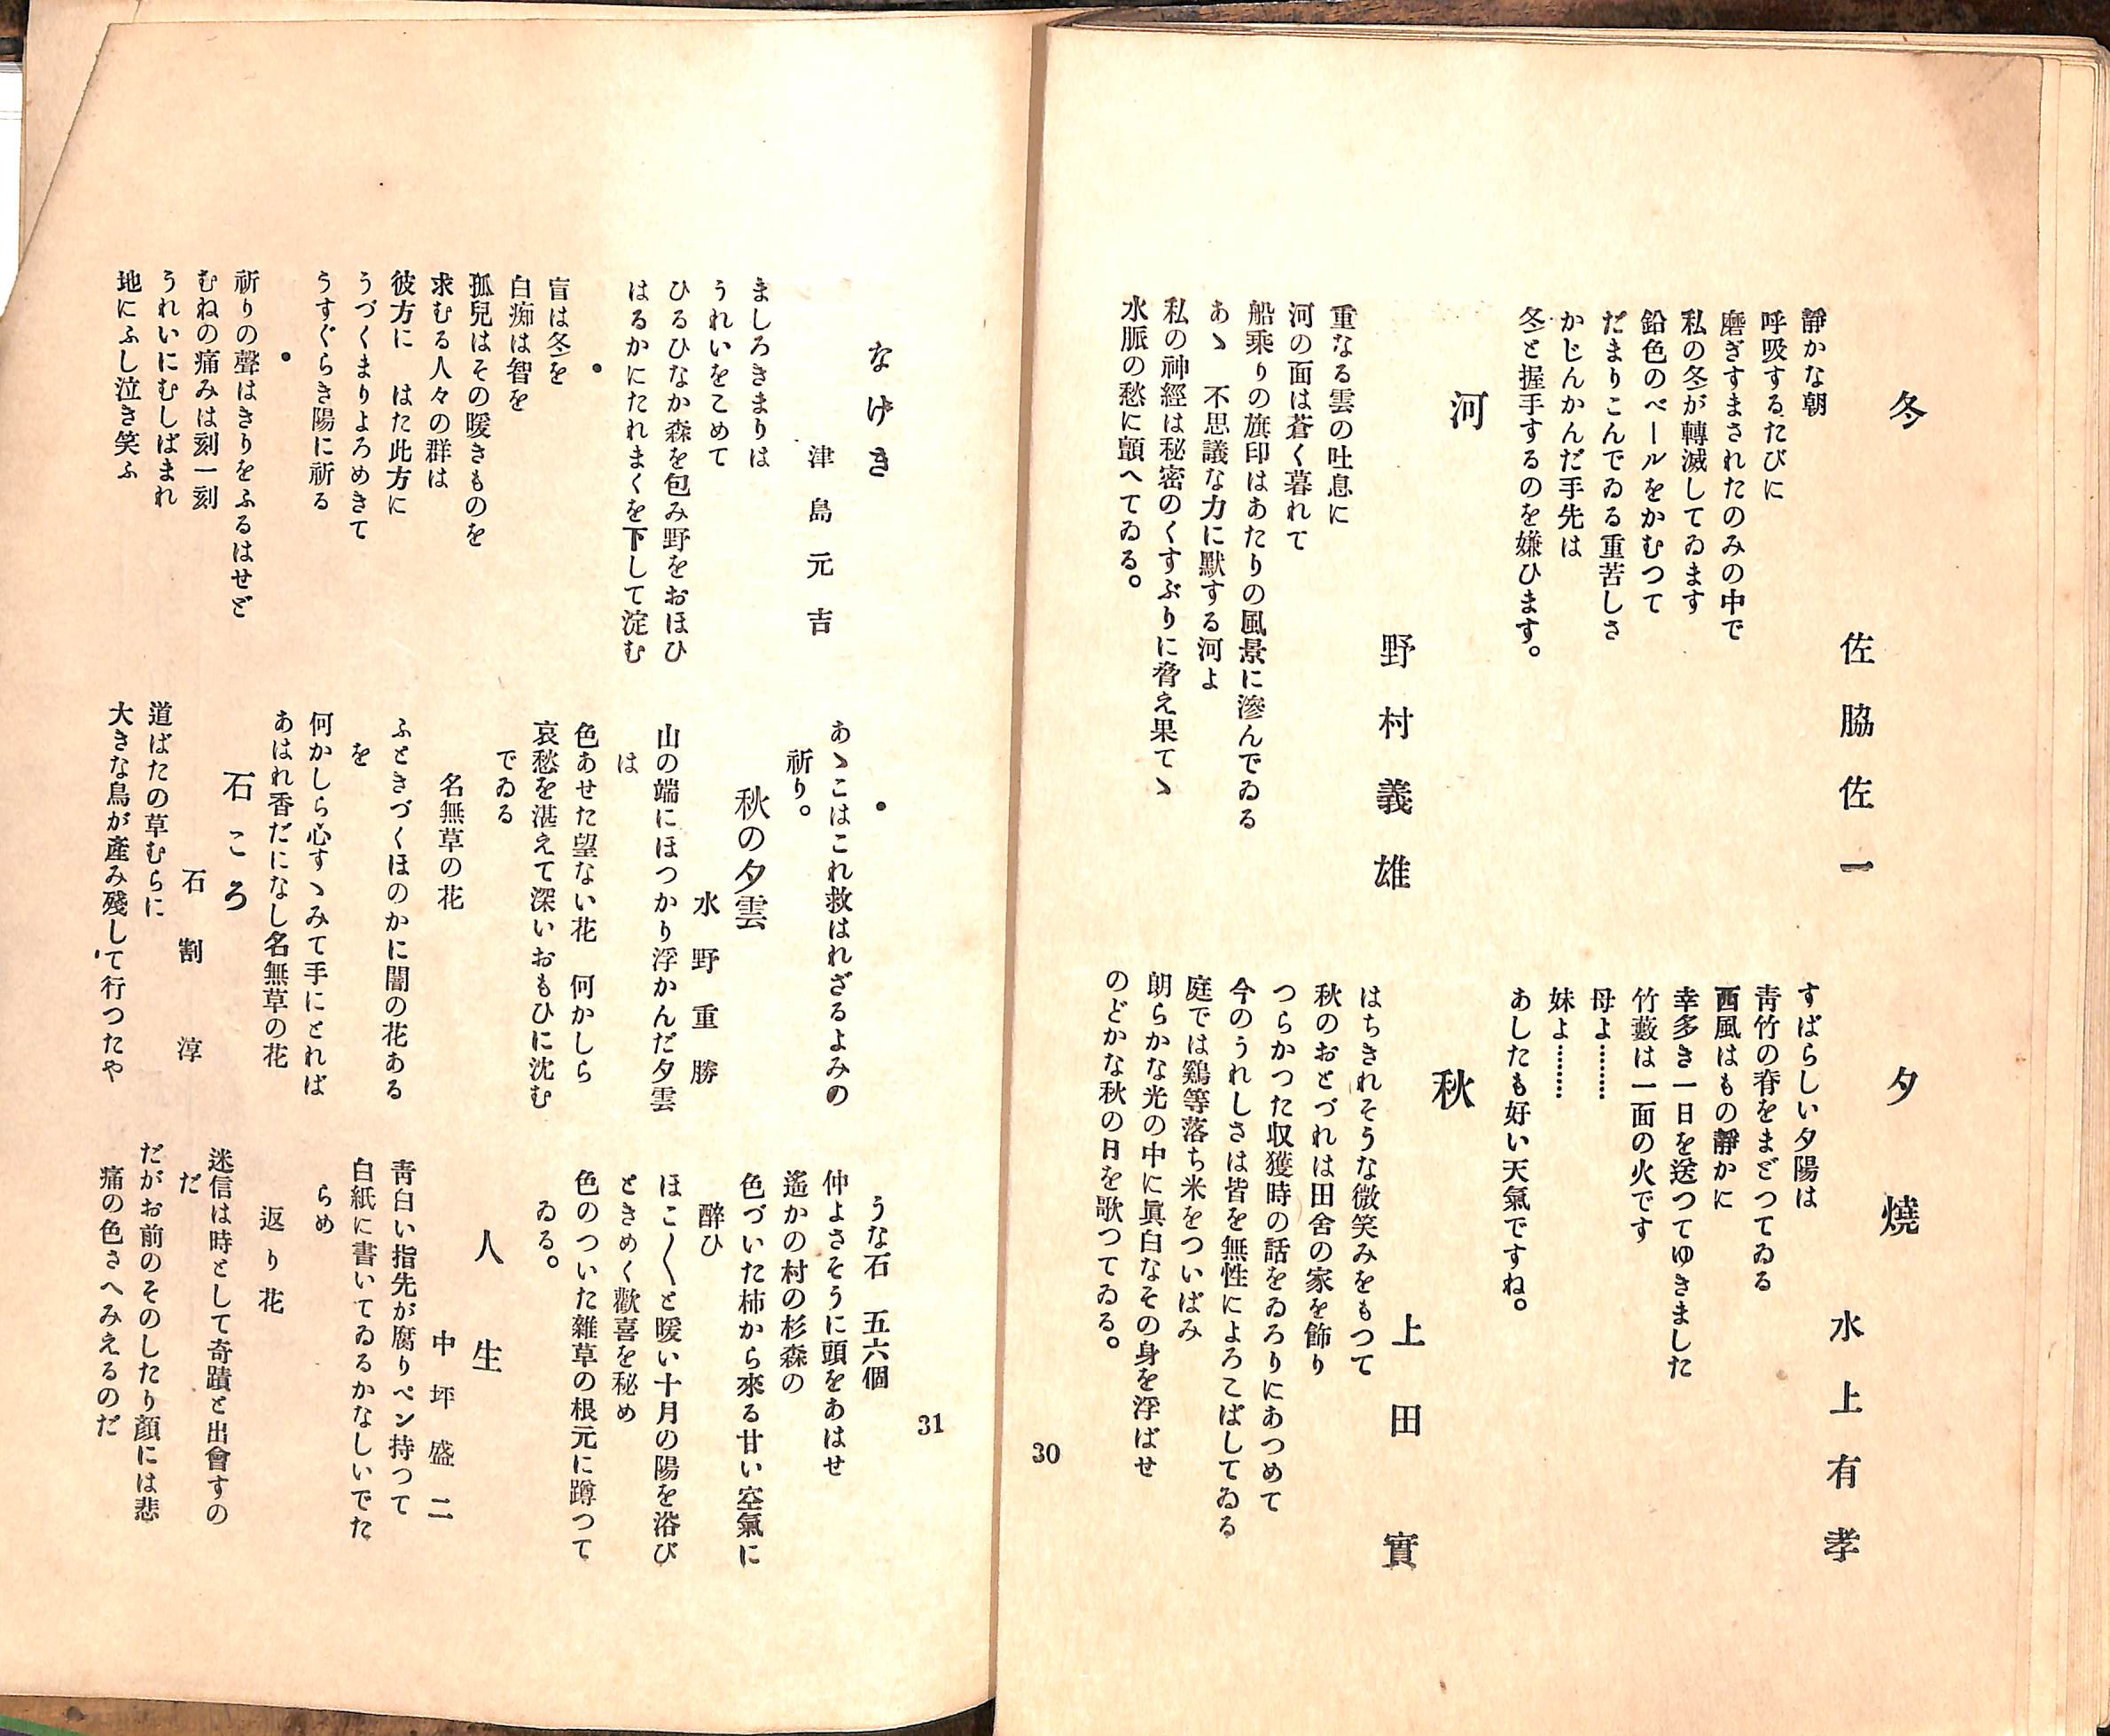 冬
佐脇佐一
靜かな朝
呼吸するたびに
磨ぎすまされたのみの中で
私の冬が轉滅してゐます
鉛色のベールをかむつて
だまりこんでゐる重苦しさ
かじんかんだ手先は
冬と握手するのを嫌ひます。
河
野村義雄
重なる雲の吐息に
河の面は蒼く暮れて
船乘りの旗印はあたりの風景に滲んでゐる
あゝ　不思議な力に默する河よ
私の神經は秘密のくすぶりに脅え果てゝ
水脈の愁に顫へてゐる。
夕燒
水上有孝
すばらしい夕陽は
靑竹の脊をまどつてゐる
西風はもの靜かに
幸多き一日を送つてゆきました
竹藪は一面の火です
母よ………
妹よ………
あしたも好い天氣ですね。
秋
上田實
はちきれそうな微笑みをもつて
秋のおとづれは田舍の家を飾り
つらかつた収獲時の話をゐろりにあつめて
今のうれしさは皆を無性によろこばしてゐる
庭では鷄等落ち米をついばみ
朗らかな光の中に眞白なその身を浮ばせ
のどかな秋の日を歌つてゐる。
30
なげき
津島元吉
ましろきまりは
うれいをこめて
ひるひなか森を包み野をおほひ
はるかにたれまくを下して淀む
●
盲は冬を
白痴は智を
孤兒はその暖きものを
求むる人々の群は
彼方に　はた此方に
うづくまりよろめきて
うすぐらき陽に祈る
●
祈りの聲はきりをふるはせど
むねの痛みは刻一刻
うれいにむしばまれ
地にふし泣き笑ふ
●
あゝこはこれ救はれざるよみの
祈り。
秋の夕雲
水野重勝
山の端にほつかり浮かんだ夕雲
は
色あせた望ない花　何かしら
哀愁を湛えて深いおもひに沈む
でゐる
名無草の花
ふときづくほのかに闇の花ある
を
何かしら心すゝみて手にとれば
あはれ香だになし名無草の花
石ころ
石割淳
道ばたの草むらに
大きな鳥が產み殘して行つたや
うな石　五六個
仲よさそうに頭をあはせ
遙かの村の杉森の
色づいた柿から來る甘い空氣に
醉ひ
ほこ〱と暖い十月の陽を浴び
ときめく歡喜を秘め
色のついた雜草の根元に蹲つて
ゐる。
人生
中坪盛二
靑白い指先が腐りペン持つて
白紙に書いてゐるかなしいでた
らめ
返り花
迷信は時として奇蹟と出會すの
だ
だがお前のそのしたり顏には悲
痛の色さへみえるのだ
31